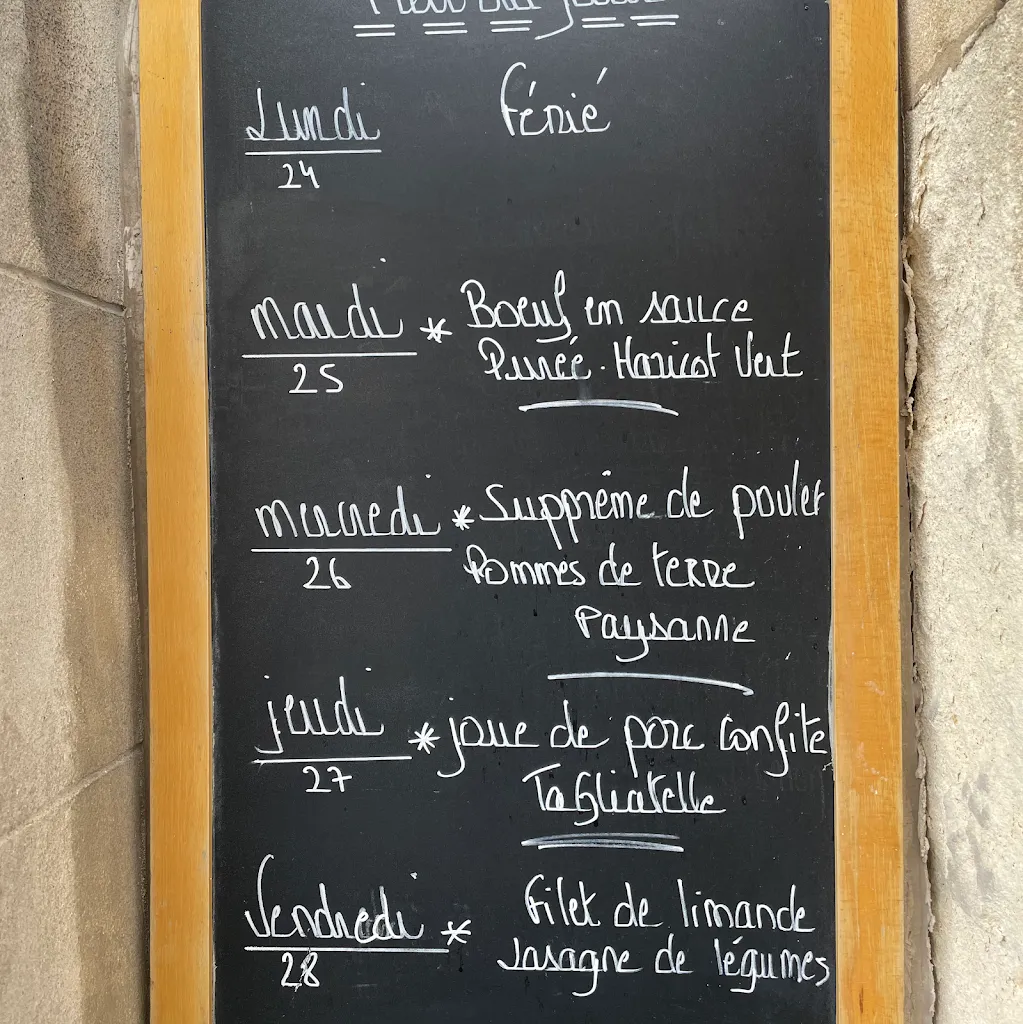 Plat du jour
Lundi Férié
24
mardi * Boeuf en sauce
25 Purée. Haricot Vert
mercredi * Supprême de poulet
26 Pommes de terre
Paysanne
jeudi * joue de porc Confite
27 Tagliatelle
Vendredi * Filet de limande
28 Lasagne de légumes